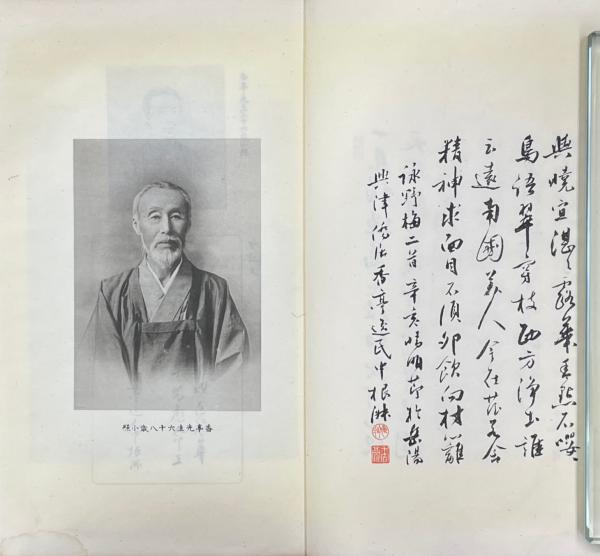 與曉宜湛々露華
鳥語翠穿枝西方淨土誰
云遠南國美人今在茲若会
精神求面目不須卯飲向村籬
詠野梅二首辛亥晴明節於岳陽
興津僑居香亭逸民中根淑
香亭先生六十八歳小照